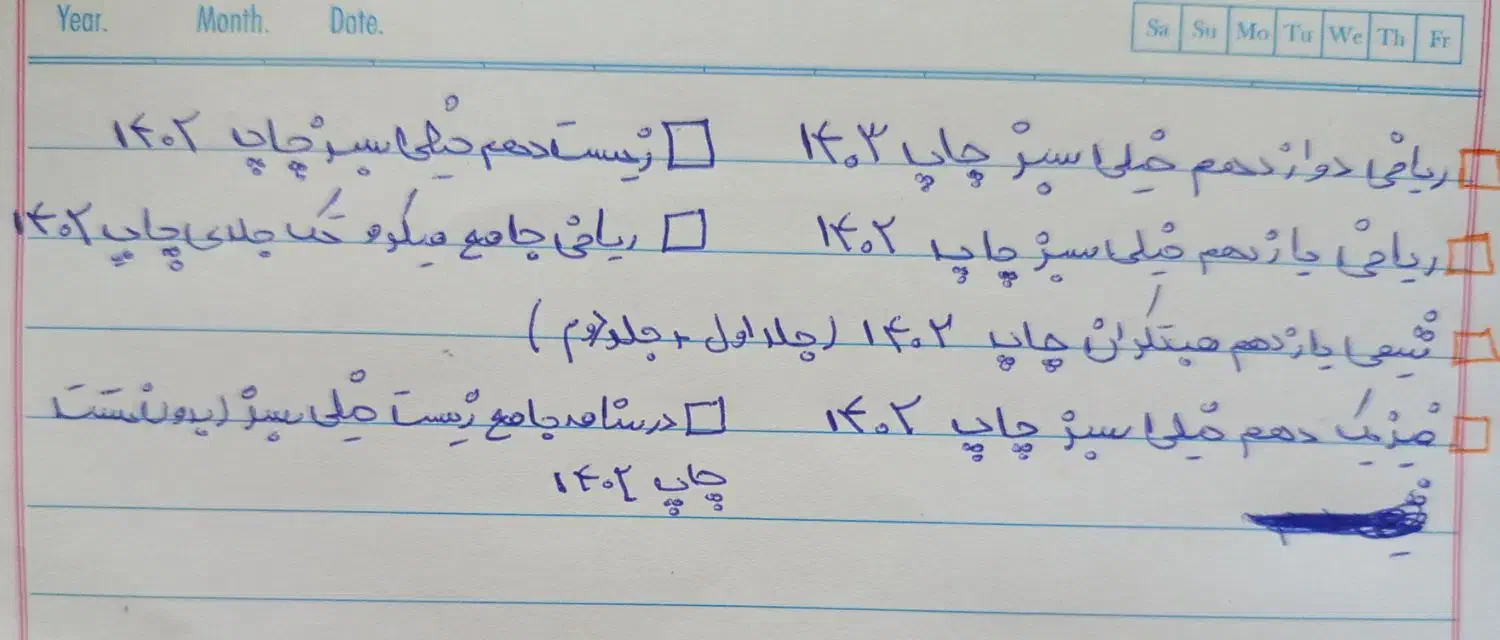 Year. Month. Date. Sa Su Mo Tu We Th Fr
ریاضی دوازدهم خیلی سبز چاپ ۱۴۰۳
زیست دهم خیلی سبز چاپ ۱۴۰۲
ریاضی یازدهم خیلی سبز چاپ ۱۴۰۲
ریاضی جامع میکرو تک جلدی چاپ ۱۴۰۲
شیمی یازدهم مبتکران چاپ ۱۴۰۲ (جلد اول + جلد دوم)
فیزیک دهم خیلی سبز چاپ ۱۴۰۲
درسنامه جامع زیست خیلی سبز (بدون تست
چاپ ۱۴۰۲